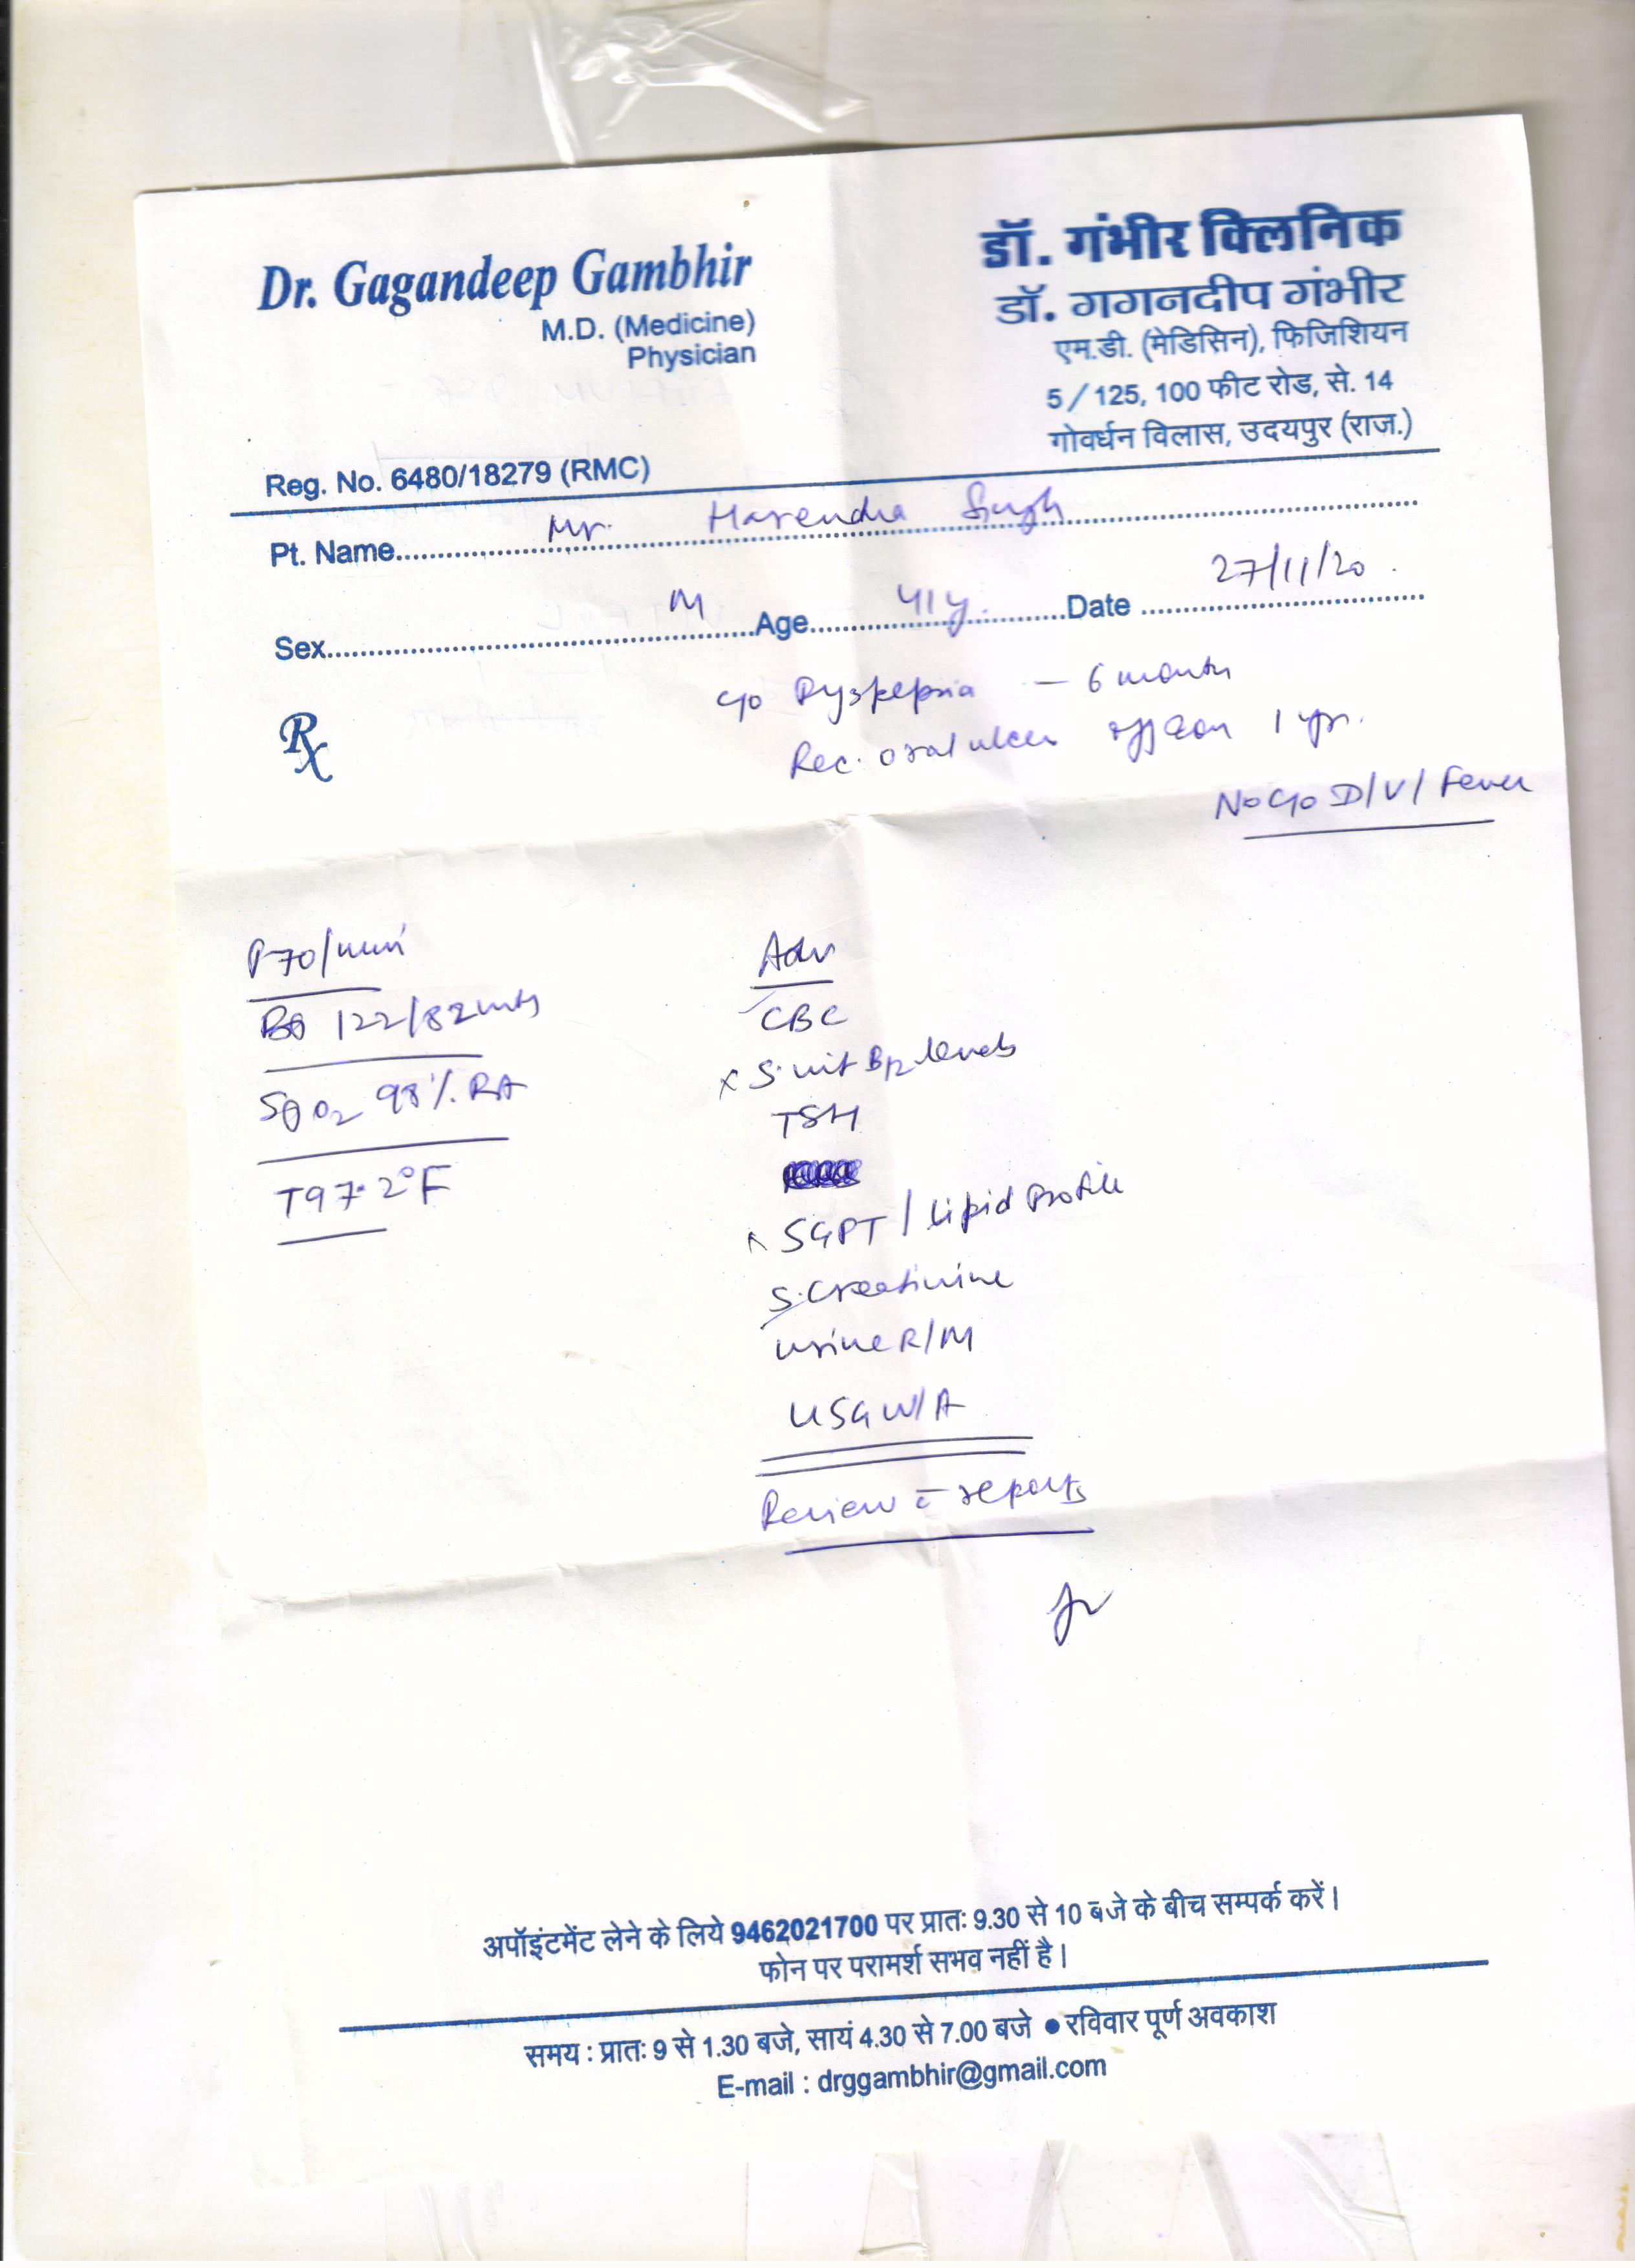 Dr. Gagandeep Gambhir
M.D. (Medicine)
Physician
Reg. No. 6480/18279 (RMC)
डॉ. गंभीर क्लिनिक
डॉ. गगनदीप गंभीर
एम.डी. (मेडिसिन), फिजिशियन
5/125, 100 फीट रोड, से. 14
गोवर्धन विलास, उदयपुर (राज.)
Pt. Name Mr. Harendra Singh
Sex M Age 41y. Date 27/11/20.
Rx
c/o Dyspepsia — 6 month
Rec. oral ulcer 1 yr.
No c/o D/V/Fever
P 70/min
122/82
SpO2 98%. RA
T97.2°F
Adv
CBC
x S. vit B12 levels
TSH
SGPT / Lipid Profile
S. Creatinine
urine R/M
USG W/A
Review c̄ reports
अपॉइंटमेंट लेने के लिये 9462021700 पर प्रातः 9.30 से 10 बजे के बीच सम्पर्क करें।
फोन पर परामर्श सभव नहीं है।
समय : प्रातः 9 से 1.30 बजे, सायं 4.30 से 7.00 बजे ●रविवार पूर्ण अवकाश
E-mail : drggambhir@gmail.com